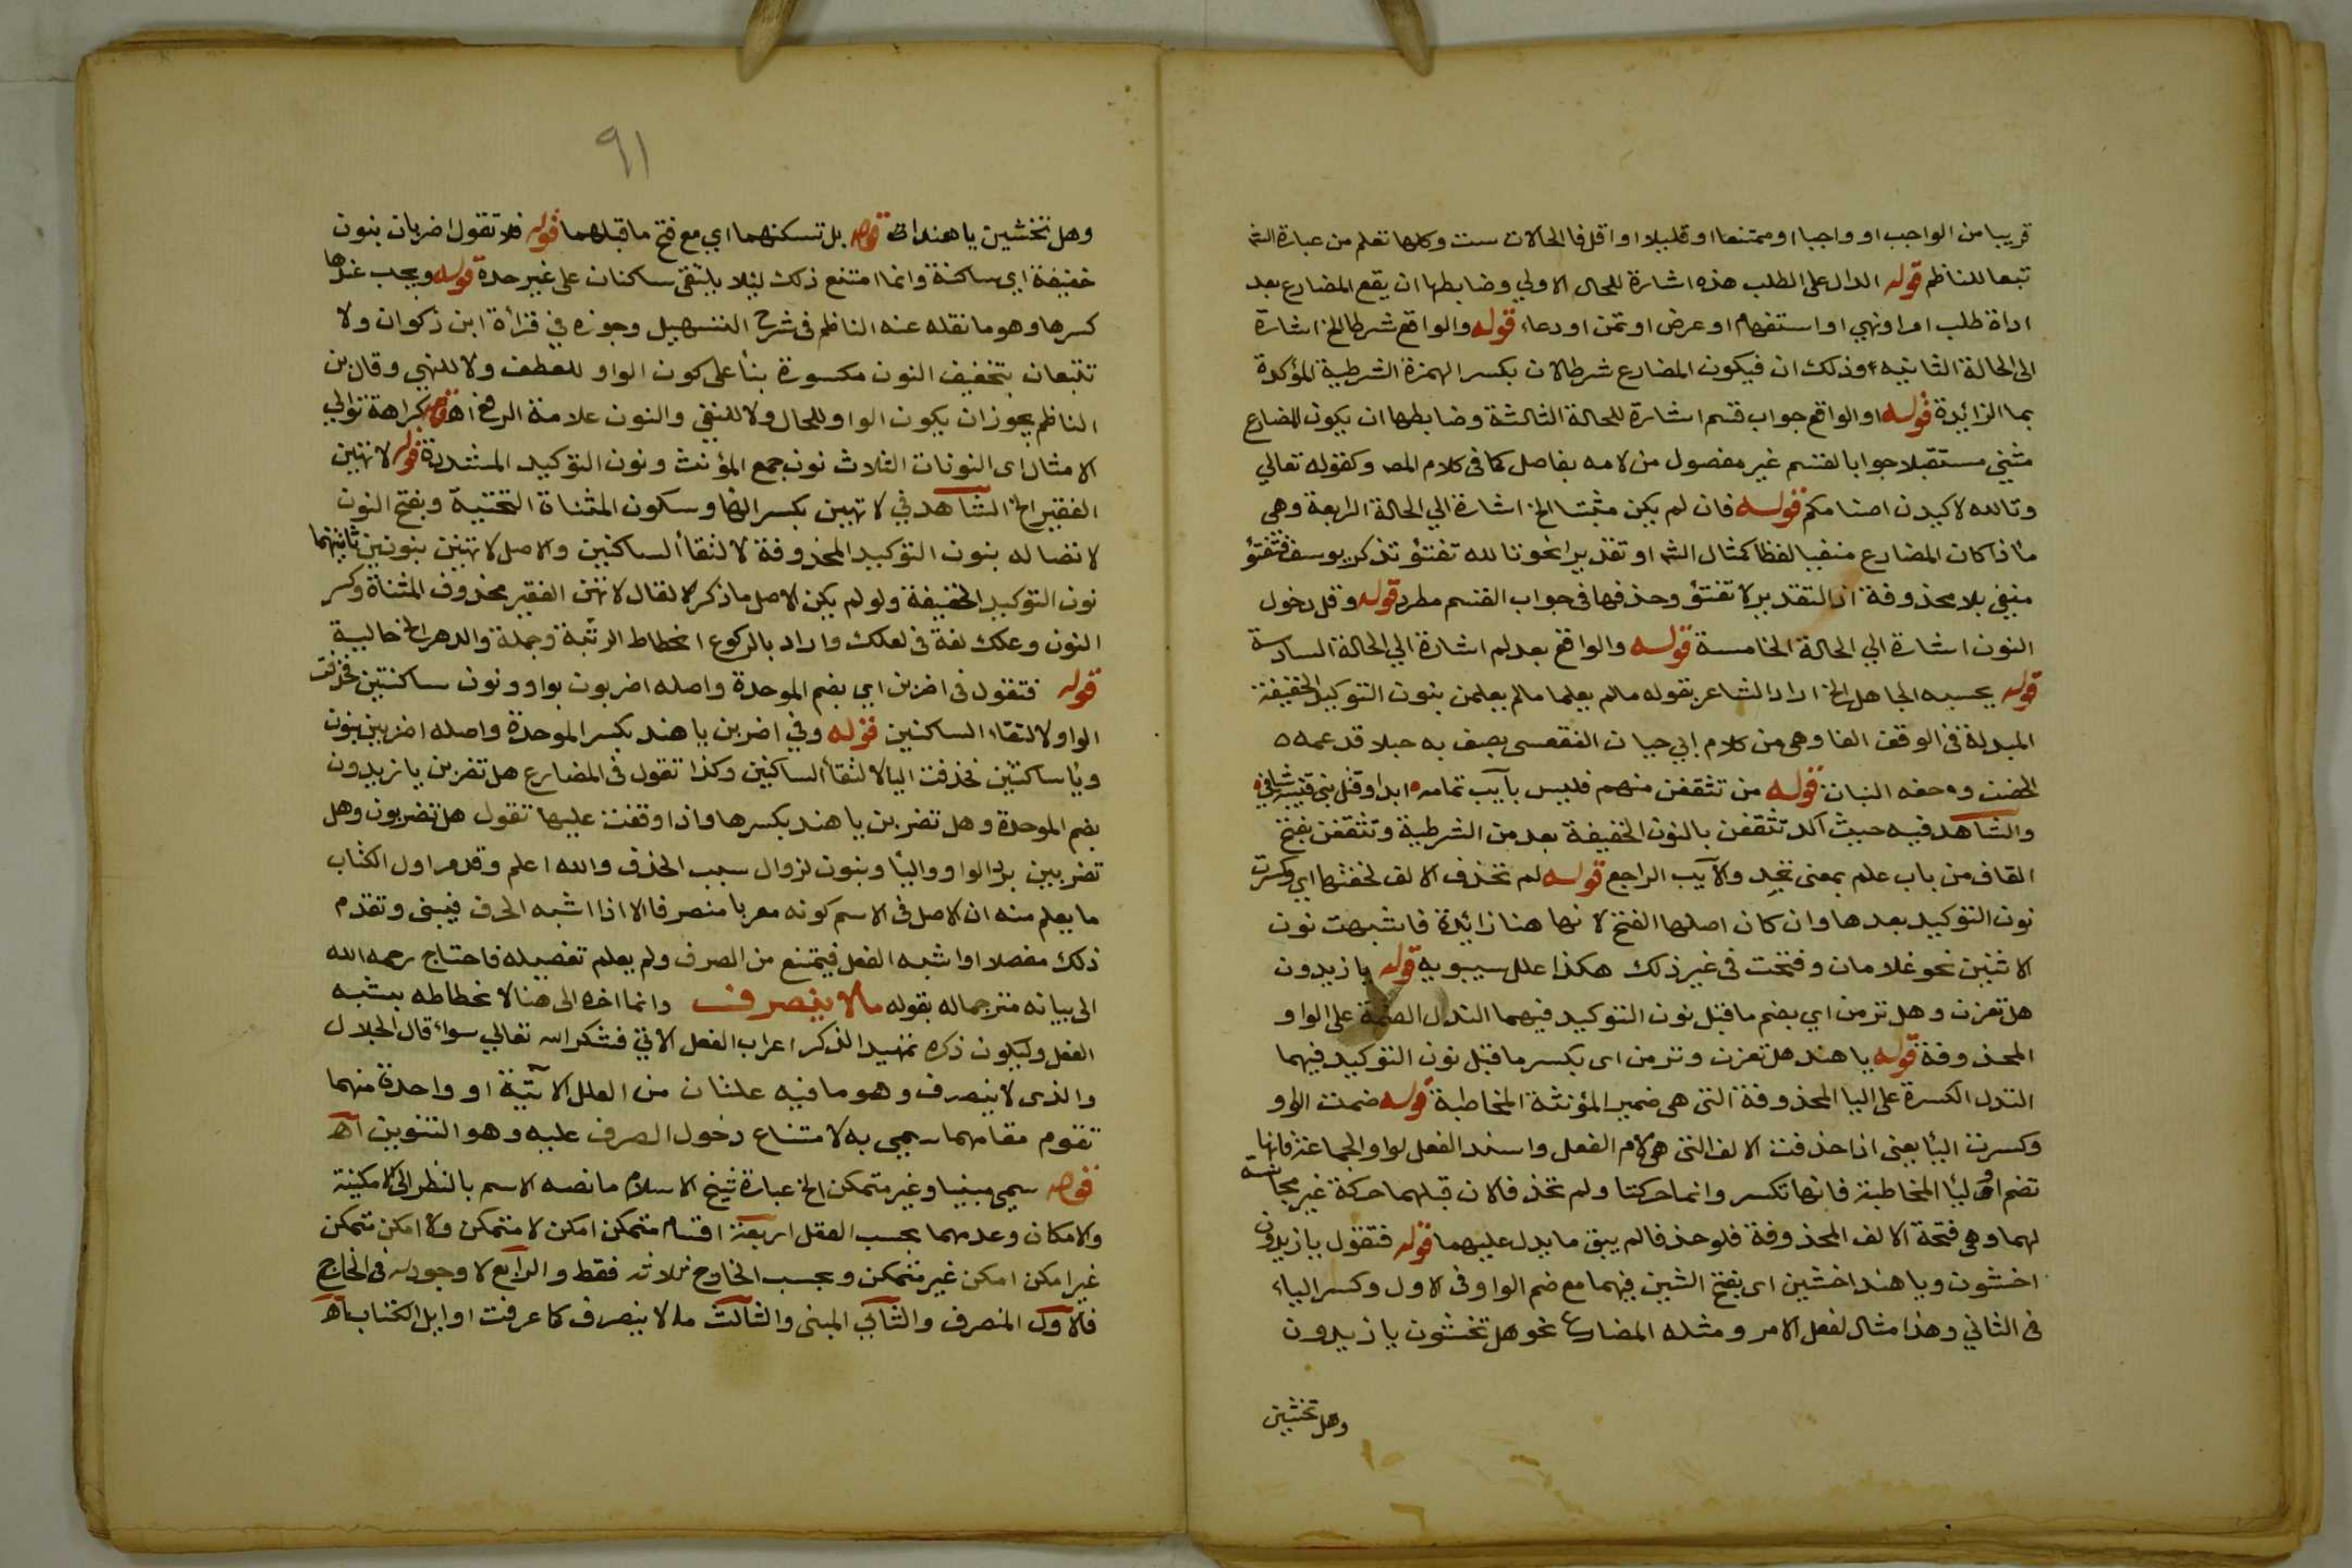 قريبا من الواجب او واجبا او ممتنعا او قليلا او اقل فالحالات ست وكلها تعلم من عبارة الش
تبعا للناظم قوله الدال على الطلب هذه اشارة للحال الاولي وضابطها ان يقع المضارع بعد
اداة طلب امر او نهي او استفهام او عرض او تمن او دعاء قوله والواقع شرطا الخ اشارة
الى الحالة الثانيه وذلك ان فيكون المضارع شرطا لان بكسر الهمزة الشرطية المؤكدة
بما الزائدة قوله او الواقع جواب قسم اشارة للحالة الثالثة وضابطها ان يكون المضارع
مثبتي مستقبلا جوابا لقسم غير مفصول من لامه بفاصل كما فى كلام المص وكقوله تعالي
وتالله لاكيدن اصنامكم قوله فان لم يكن مثبتا الخ اشارة الي الحالة الرابعة وهى
ما ذا كان المضارع منفيا لفظا كمثال الش او تقديرا نحو تالله تفتؤ تذكر يوسف فتفتؤ
منفي بلا محذوفة اذ التقدير لا تفتؤ وحذفها فى جواب القسم مطرد قوله وقل دخول
النون اشارة الي الحالة الخامسة قوله والواقع بعد لم اشارة الي الحالة السادسة
قوله يحسبه الجاهل الخ اراد الشاعر بقوله مالم يعلما مالم يعلمن بنون التوكيد الخفيفة
المبدلة فى الوقف الفا وهى من كلام ابي حيان الفقعسى يصف به جبلا قد عمه
الخصب وحفه النبات قوله من تثقفن منهم فليس بآيب تمامه ابدا وقتل بني قتيبة شافي
والشاهد فيه حيث اكد تثقفن بالنون الخفيفة بعد من الشرطية وتثقفن بفتح
القاف من باب علم بمعنى تجد والآيب الراجع قوله لم تحذف الالف لخفتها اي وكسرت
نون التوكيد بعدها وان كان اصلها الفتح لانها هنا زائدة فاشبهت نون
الاثنين نحو غلامان وفتحت فى غير ذلك هكذا علل سيبويه قوله يا زيدون
هل تغزن وهل ترمن اي بضم ما قبل نون التوكيد فيهما لتدل الضمة على الواو
المحذوفة قوله يا هند هل تغزن وترمن اى بكسر ما قبل نون التوكيد فيهما
لتدل الكسرة على اليا المحذوفة التى هى ضمير المؤنثة المخاطبة قوله ضمت الواو
وكسرت اليا يعنى اذا حذفت الالف التى هى لام الفعل واسند الفعل لواو الجماعة فانها
تضم او ليا المخاطبة فانها تكسر وانما حركتا ولم تحذفا لان قبلهما حركة غير مجانسة
لهما وهى فتحة الالف المحذوفة فلو حذفا لم يبق ما يدل عليهما قوله فتقول يا زيدون
اخشون ويا هند اخشين اى بفتح الشين فيهما مع ضم الواو فى الاول وكسر الياء
فى الثاني وهذا مثال لفعل الامر ومثله المضارع نحو هل تخشون يا زيدون
وهل تخشين
٩١
وهل تخشين يا هند قوله بل تسكنهما اي مع فتح ما قبلهما قوله فلا تقول اضربان بنون
خفيفة اي ساكنة وانما امتنع ذلك ليلا يلتقى ساكنان على غير حدة قوله ويجب عندها
كسرها وهو ما نقله عنه الناظم فى شرح التسهيل وجوزه في قراة ابن ذكوان ولا
تتبعان بتخفيف النون مكسورة بنأ على كون الواو للعطف ولا للنهي وقال بن
الناظم يجوز ان يكون الواو للحال ولا للنفي والنون علامة الرفع اهـ قوله كراهة توالي
الامثال اى النونات الثلاث نون جمع المؤنث ونون التوكيد المشددة قوله لا تهين
الفقير الخ الشاهد في لا تهين بكسر الها وسكون المثناة التحتية وبفتح النون
لاتصاله بنون التوكيد المحذوفة لالتقأ الساكنين والاصل لا تهينن بنونين ثانيتهما
نون التوكيد الخفيفة ولو لم يكن الاصل ما ذكر لقال لا تهن الفقير بحذوف المثناة وكسر
النون وعلك لغة فى لعلك واراد بالركوع انحطاط الرتبة وجملة والدهر الخ حالية
قوله فتقول فى اضربن اي بضم الموحدة واصله اضربون بواو ونون ساكنتين فحذفت
الواو لالتقاء الساكنين قوله وفي اضربن يا هند بكسر الموحدة واصله اضربين بنون
ويا ساكنتين فحذفت اليا لالتقأ الساكنين وكذا تقول فى المضارع هل تضربن يا زيدون
بضم الموحدة وهل تضربن يا هند بكسرها واذا وقفت عليها تقول هل تضربون وهل
تضربين برد الواو واليا وبنون لزوال سبب الحذف والله اعلم وقدم اول الكتاب
ما يعلم منه ان الاصل فى الاسم كونه معربا منصرفا الا اذا اشبه الحرف فيبنى وتقدم
ذلك مفصلا او اشبه الفعل فيمتنع من الصرف ولم يعلم تفصيله فاحتاج رحمه الله
الى بيانه مترجما له بقوله مالا ينصرف وانما اخره الى هنا لانحطاطه بشبه
الفعل وليكون ذكره تمهيدا لذكر اعراب الفعل الاتي فشكر الله تعالي سواء قال الجلال
والذى لا ينصرف وهو ما فيه علتان من العلل الاتية او واحدة منهما
تقوم مقامهما سمي به لامتناع دخول الصرف عليه وهو التنوين اهـ
قوله سمي مبنيا وغير متمكن الخ عبارة شيخ الاسلام ما نصه الاسم بالنظر الى الامكنية
والامكان وعدمهما بحسب العقل اربعة اقسام متمكن امكن لا متمكن ولا امكن متمكن
غير امكن امكن غير متمكن وبحسب الخارج ثلاثه فقط والرابع لا وجود له فى الخارج
فالاول المنصرف والثاني المبنى والثالث ما لا ينصرف كما عرفت اوايل الكتاب اهـ